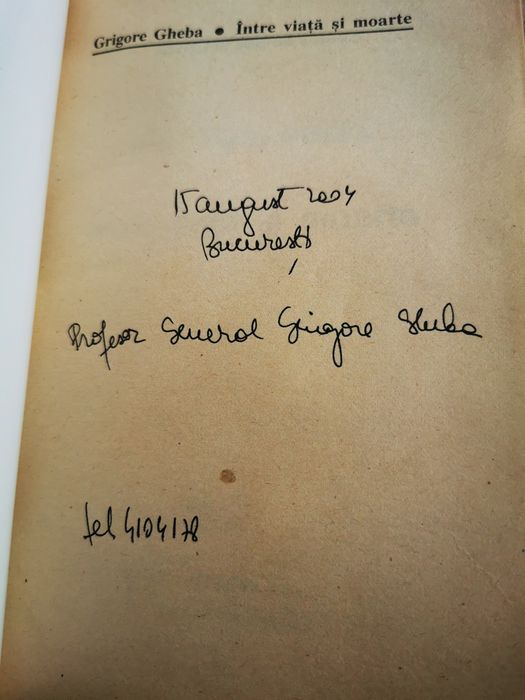 Grigore Gheba • Între viață și moarte
15 august 2004
București
Profesor General Grigore Gheba
tel 4104178